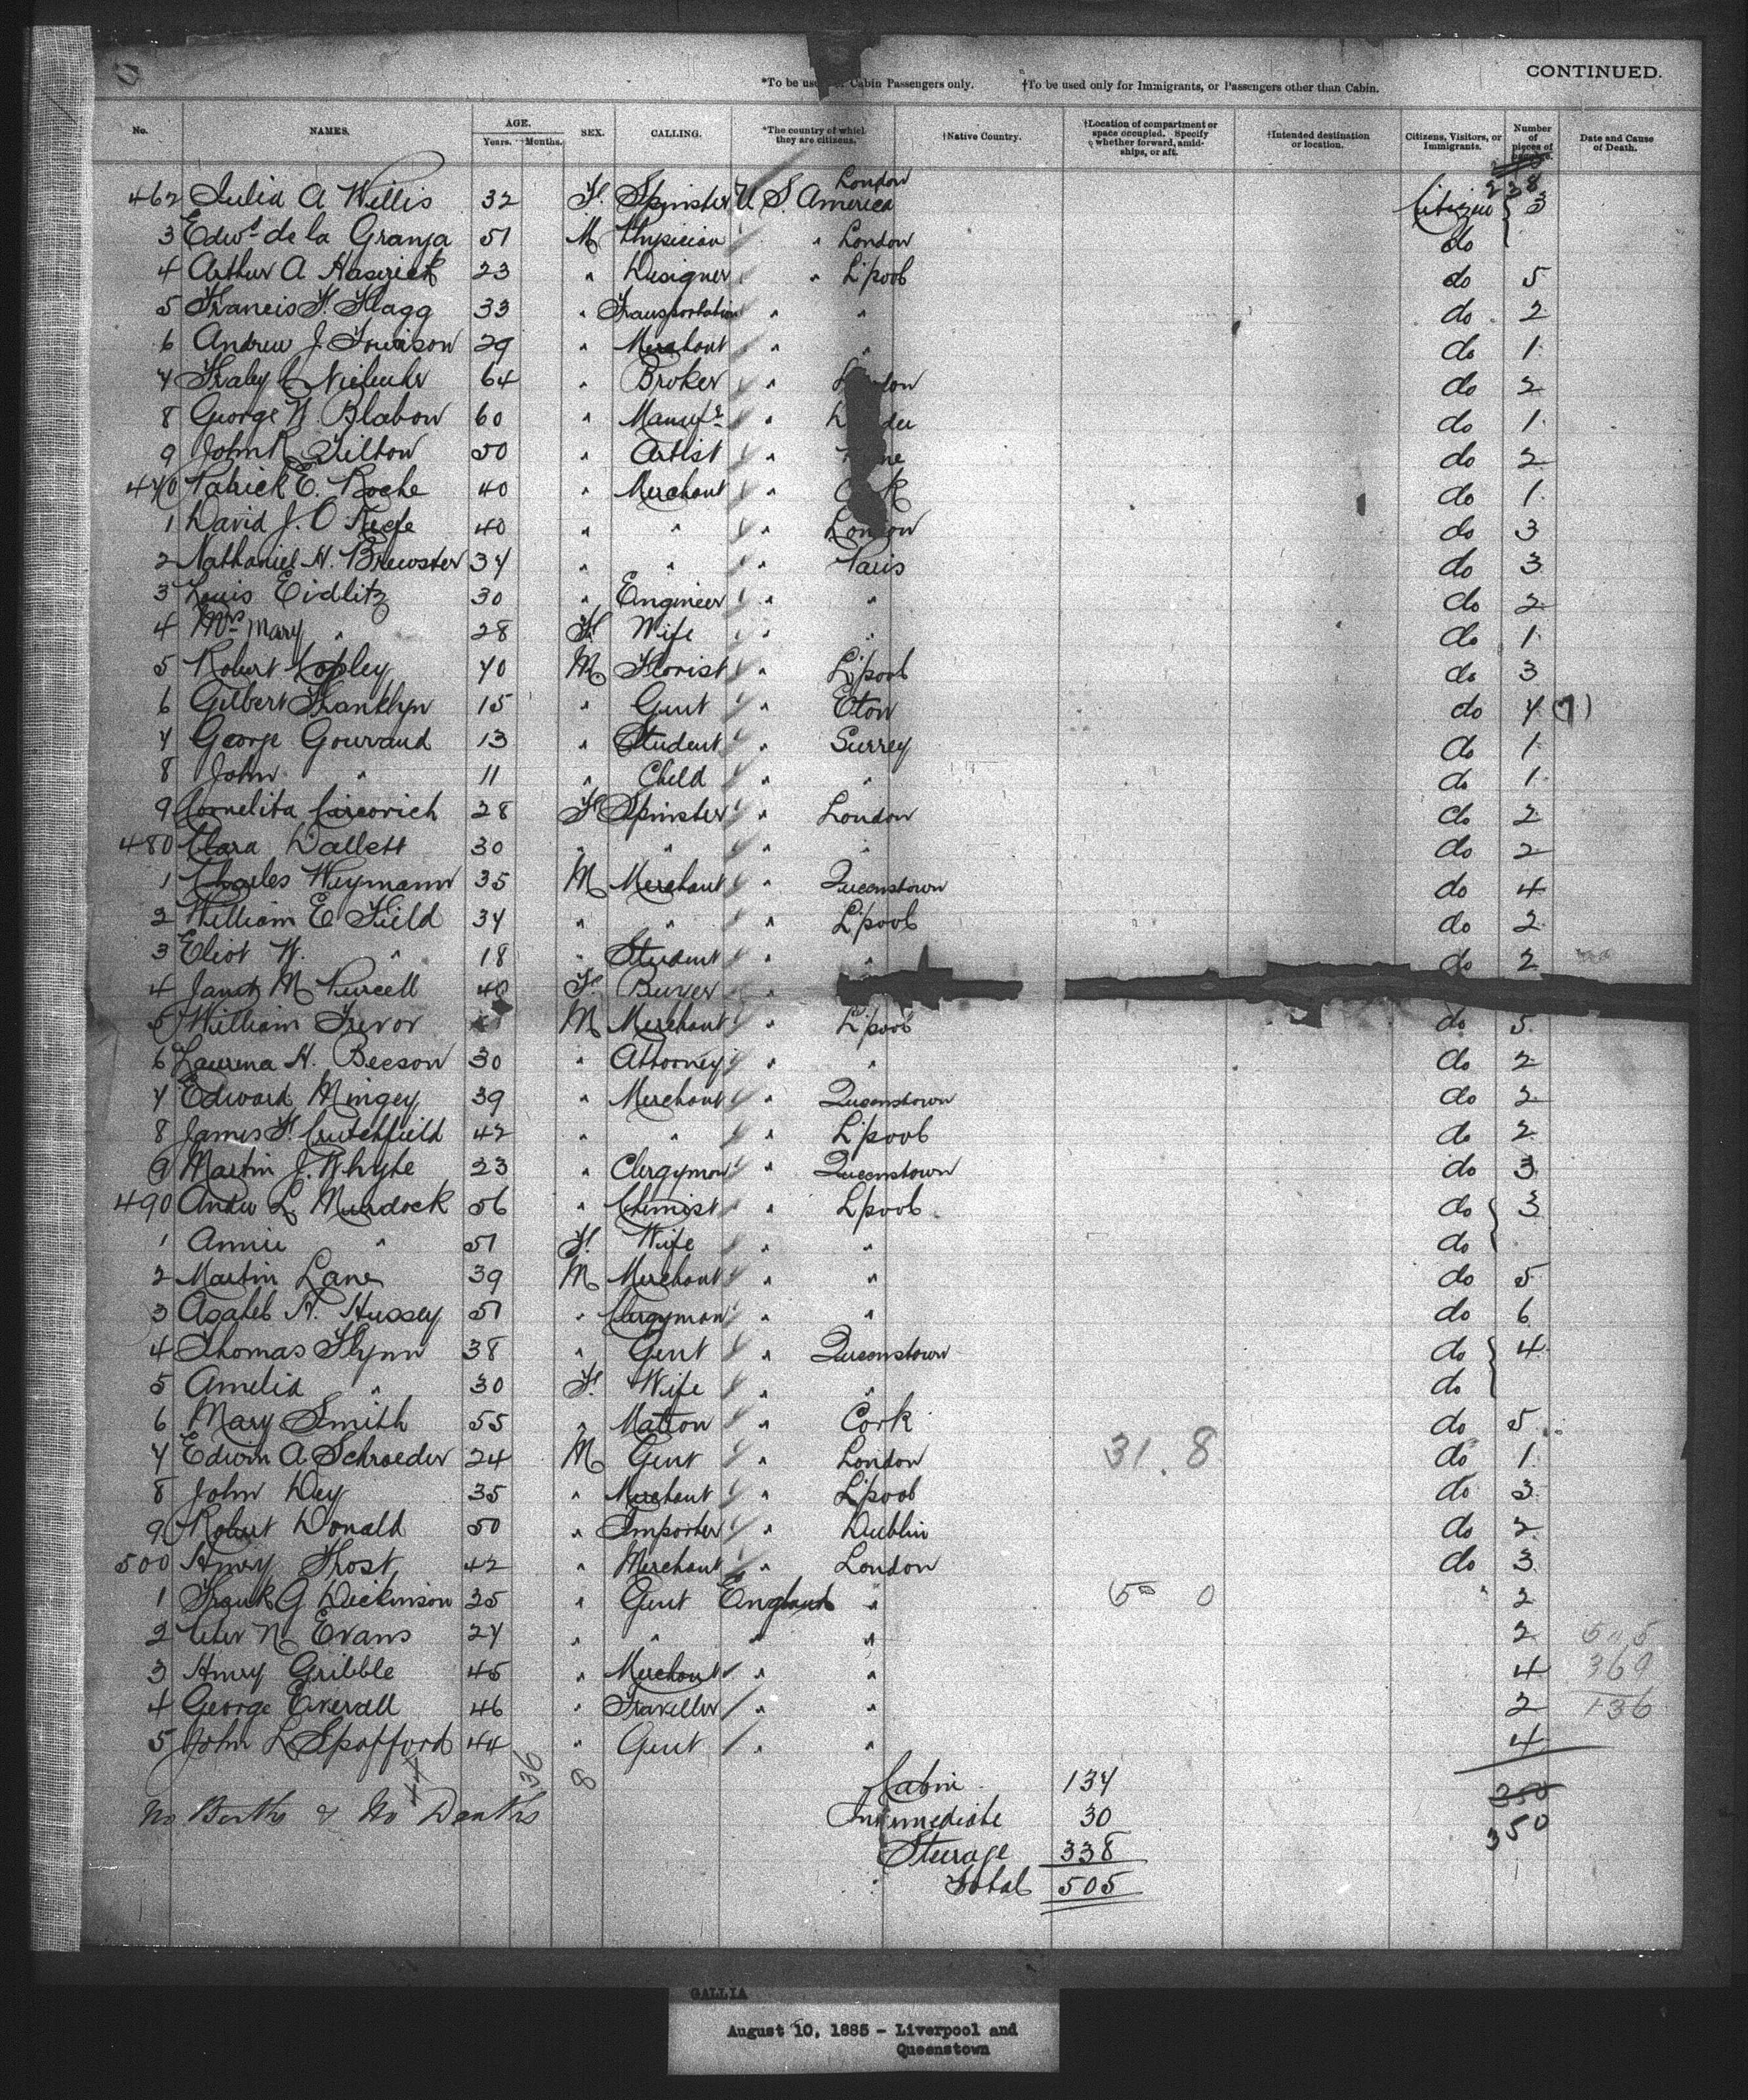 CONTINUED.
*To be us Cabin Passengers only. †To be used only for Immigrants, or Passengers other than Cabin.
No. NAMES. AGE. Years. Months. SEX. CALLING. *The country of which they are citizens. †Native Country. †Location of compartment or space occupied. Specify whether forward, amidships, or aft. †Intended destination or location. Citizens, Visitors, or Immigrants. Number of pieces of Date and Cause of Death.
238
462 Julia A Willis 32 F. Spinster U S. America London Citizen 3
3 Edwd de la Granja 51 M Physician " London do
4 Arthur A. 23 " Designer " L'pool do 5
5 Francis F. Flagg 33 " Transportation " " do 2
6 Andrew J. 29 " Merchant " " do 1
7 64 " Broker " L don do 2
8 George W. Blabon 60 " Manufr " L dee do 1
9 John R Tilton 50 " Artist " ne do 2
470 Patrick E. Roche 40 " Merchant " C k do 1
1 David J. O'Keefe 40 " " " London do 3
2 Nathaniel H. Brewster 34 " " " Paris do 3
3 Louis Eidlitz 30 " Engineer " " do 2
4 Mrs Mary " 28 F Wife " " do 1
5 Robert Copley 40 M Florist " L'pool do 3
6 Gilbert Franklyn 15 " Gent " Eton do 7 (7)
7 George Gouraud 13 " Student " Surrey do 1
8 John " 11 " Child " " do 1
9 28 F Spinster " London do 2
480 Clara Dallett 30 " " " " do 2
1 Charles Weymann 35 M Merchant " Queenstown do 4
2 William E Field 34 " " " L'pool do 2
3 Eliot W. " 18 " Student " " do 2
4 M Purcell 40 F. Buyer "
5 William Trevor M Merchant " L'pool do 5
6 H. Beeson 30 " Attorney " " do 2
7 Edward Mingey 39 " Merchant " Queenstown do 2
8 James F. Crutchfield 42 " " " L'pool do 2
9 Martin J. Whyte 23 " Clergyman " Queenstown do 3
490 Andw L. Murdock 56 " Chemist " L'pool do 3
1 Annie " 51 F. Wife " " do
2 Martin Lane 39 M Merchant " " do 5
3 H. Hussey 51 " Clergyman " " do 6
4 Thomas Flynn 38 " Gent " Queenstown do 4
5 Amelia " 30 F. Wife " " do
6 Mary Smith 55 " Matron " Cork do 5
7 Edwin A. Schroeder 24 M Gent " London 31.8 do 1
8 John Dey 35 " Merchant " L'pool do 3
9 Robert Donald 50 " Importer " Dublin do 2
500 Henry Frost 42 " Merchant " London do 3
1 Frank G Dickinson 25 " Gent England " 50 0 " 2
2 N Evans 24 " " " " 2 505
3 Henry Gribble 45 " Merchant " " 4 369
4 George Everall 46 " Traveller " " 2 136
5 John L Spafford 44 " Gent " " 4
136 8
Cabin 134 350
No Births & No Deaths Intermediate 30 350
Steerage 338
Total 505
GALLIA
August 10, 1885 - Liverpool and
Queenstown